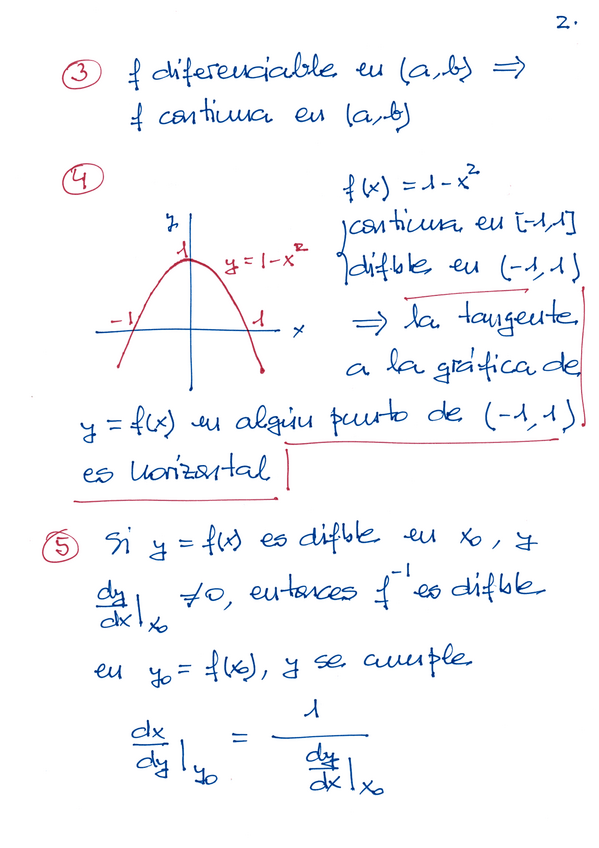 2.
③ f diferenciable en (a,b) ⟹
f continua en (a,b)
④ f(x) = 1 - x²
continua en [-1,1]
difble en (-1,1)
y
1
y = 1 - x²
-1
1
x
⟹ la tangente
a la gráfica de
y = f(x) en algún punto de (-1,1)
es horizontal
⑤ Si y = f(x) es difble en x₀, y
dy/dx|x₀ ≠ 0, entonces f⁻¹ es difble
en y₀ = f(x₀), y se cumple
dx/dy|y₀ = 1 / (dy/dx|x₀)